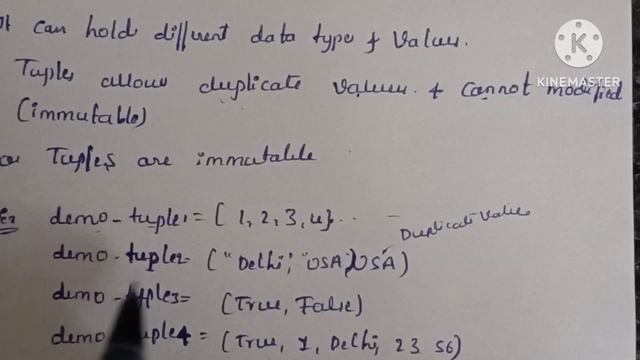 It can hold different data type & Values.
KINEMASTER
Tuples allows duplicate values & cannot modified
(immutable)
Tuples are immutable
Ex demo-tuple1 = [ 1, 2, 3, 4}
Duplicate Value
demo-tuple2 = ("Delhi", "USA", USA)
demo-tuple3= (True, False)
demo tuple4 = (True, 1, Delhi, 23 56)